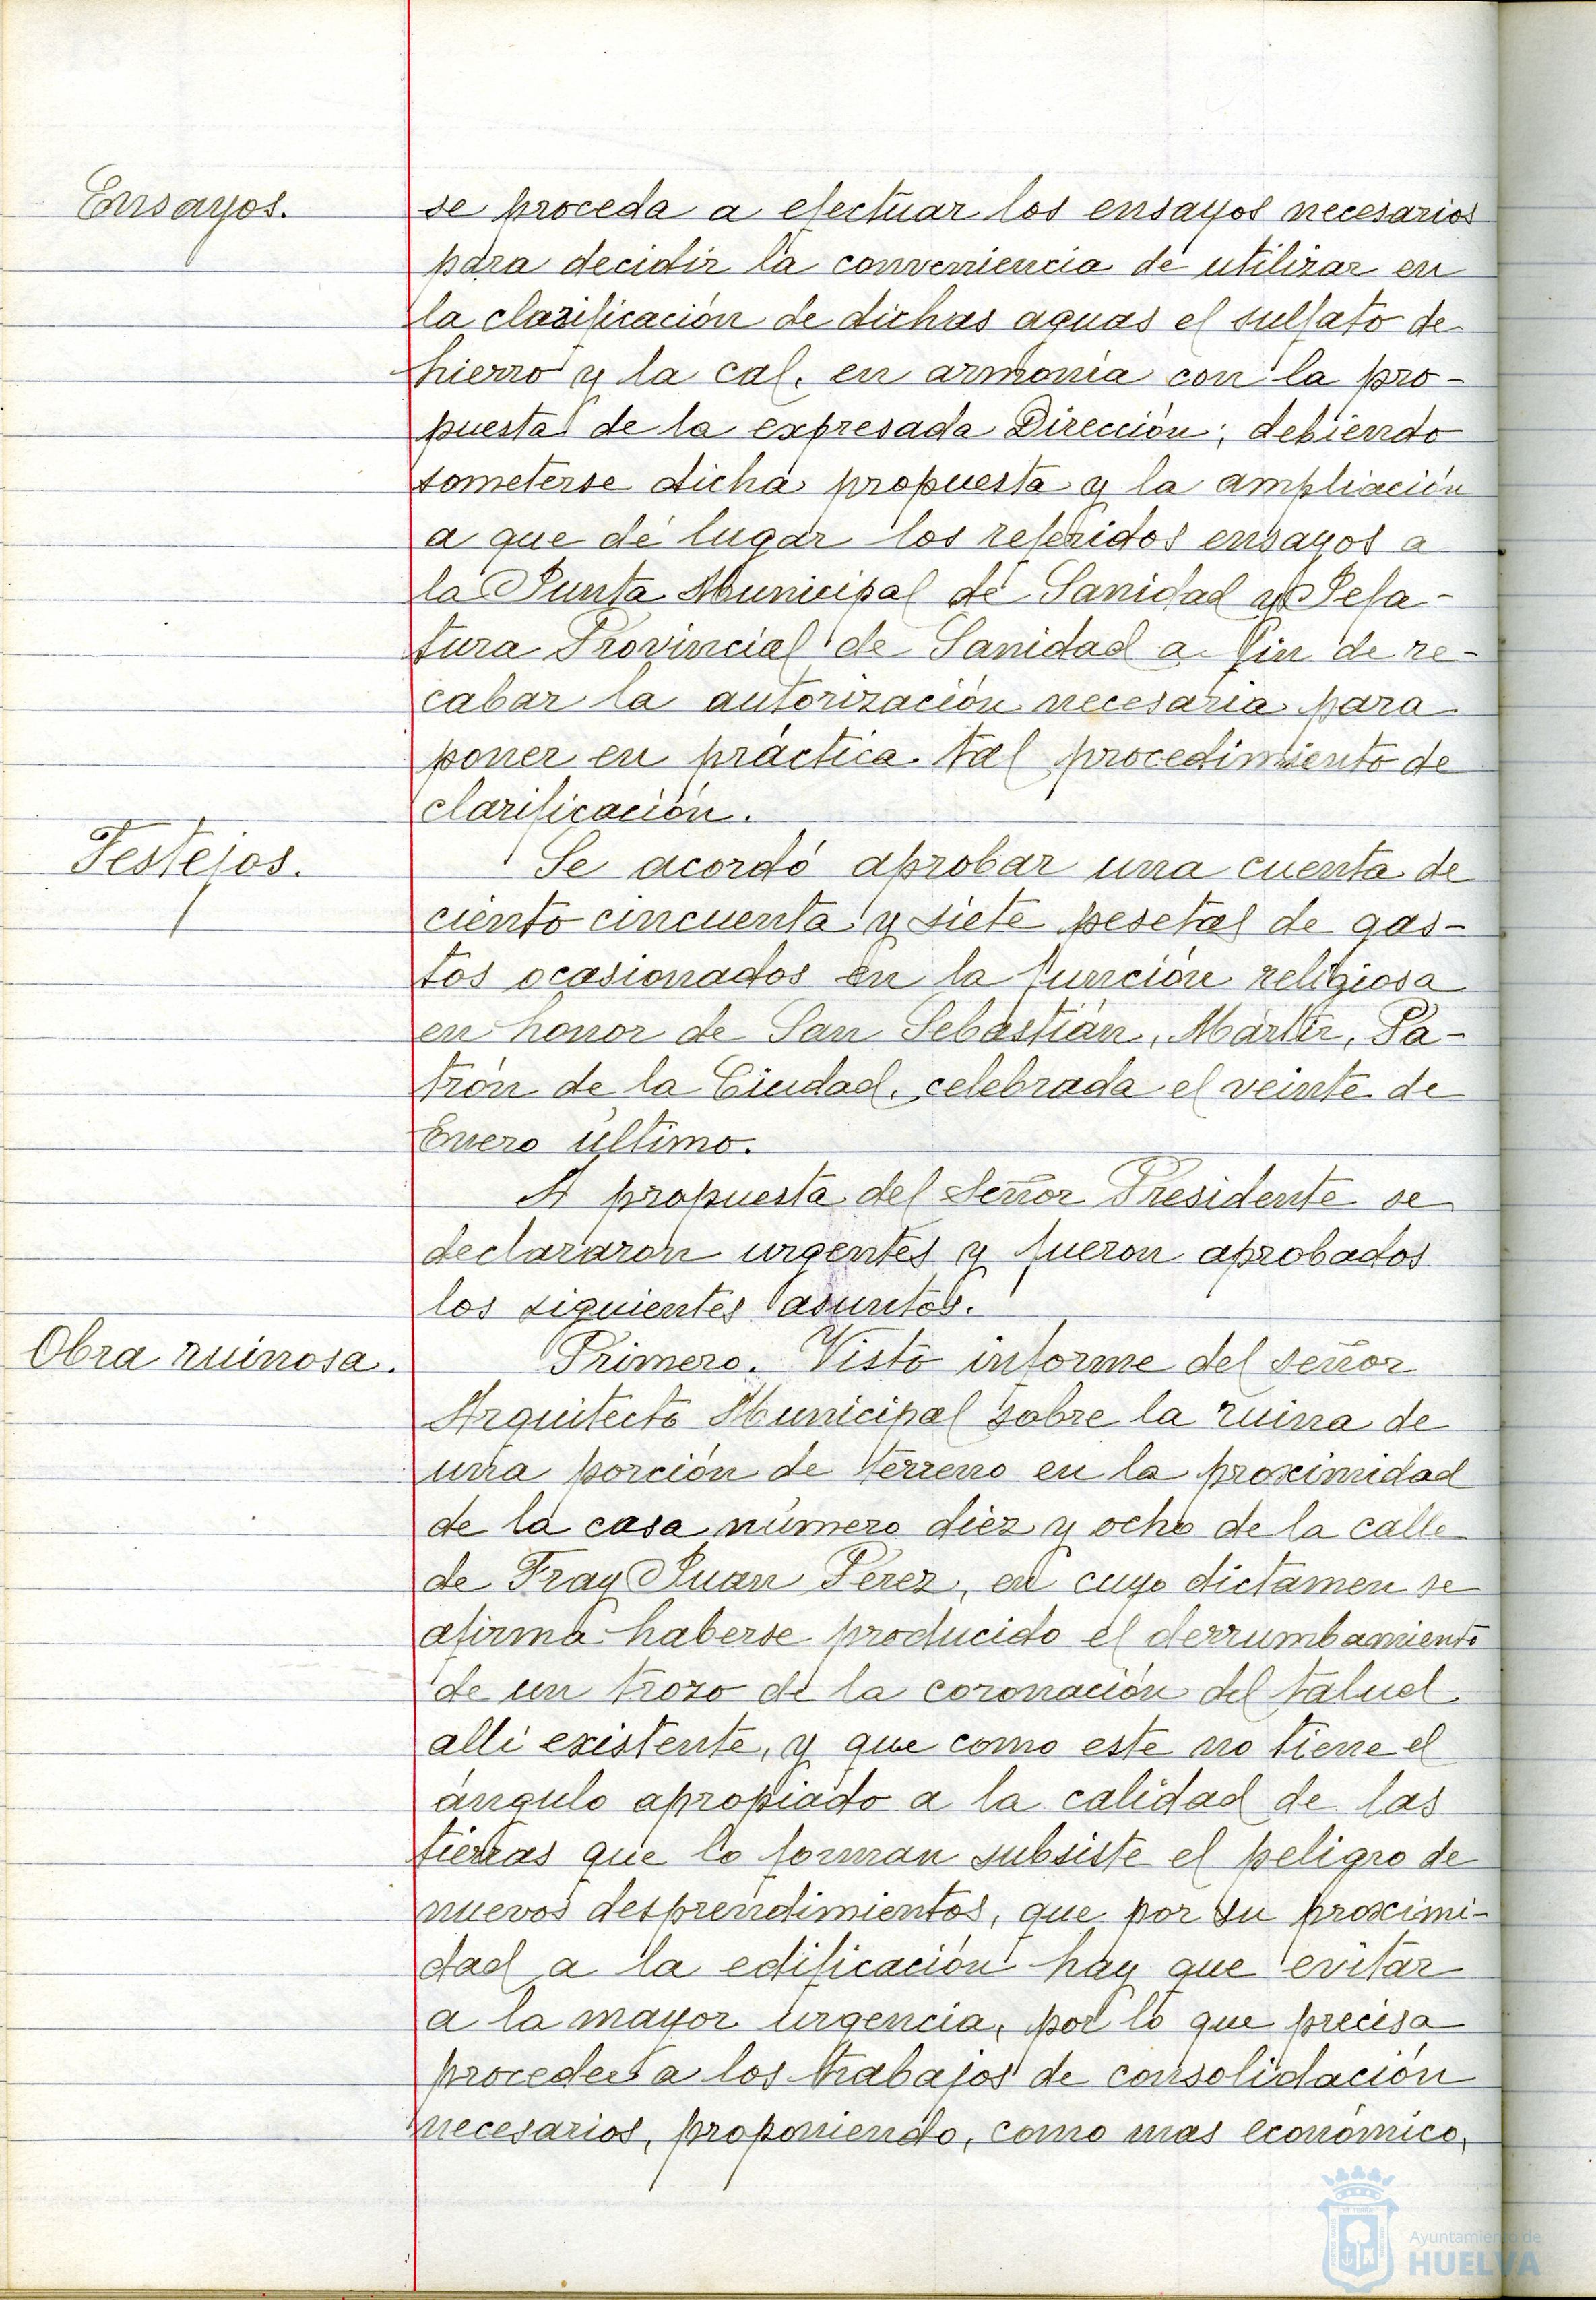 Ensayos.
se proceda a efectuar los ensayos necesarios
para decidir la conveniencia de utilizar en
la clarificación de dichas aguas el sulfato de
hierro y la cal, en armonia con la pro-
puesta de la expresada Dirección; debiendo
someterse dicha propuesta y la ampliación
a que dé lugar los referidos ensayos a
la Junta Municipal de Sanidad y Jefa-
tura Provincial de Sanidad a fin de re-
cabar la autorización necesaria para
poner en práctica tal procedimiento de
clarificación.
Festejos.
Se acordó aprobar una cuenta de
ciento cincuenta y siete pesetas de gas-
tos ocasionados en la función religiosa
en honor de San Sebastián, Mártir, Pa-
trón de la Ciudad, celebrada el veinte de
Enero último.
A propuesta del Señor Presidente se
declararon urgentes y fueron aprobados
los siguientes asuntos.
Obra ruinosa.
Primero. Visto informe del señor
Arquitecto Municipal sobre la ruina de
una porción de terreno en la proximidad
de la casa número diez y ocho de la calle
de Fray Juan Pérez, en cuyo dictamen se
afirma haberse producido el derrumbamiento
de un trozo de la coronación del talud
alli existente, y que como este no tiene el
ángulo apropiado a la calidad de las
tierras que lo forman subsiste el peligro de
nuevos desprendimientos, que por su proximi-
dad a la edificación hay que evitar
a la mayor urgencia, por lo que precisa
proceder a los trabajos de consolidación
necesarios, proponiendo, como mas económico,
Ayuntamiento de
HUELVA